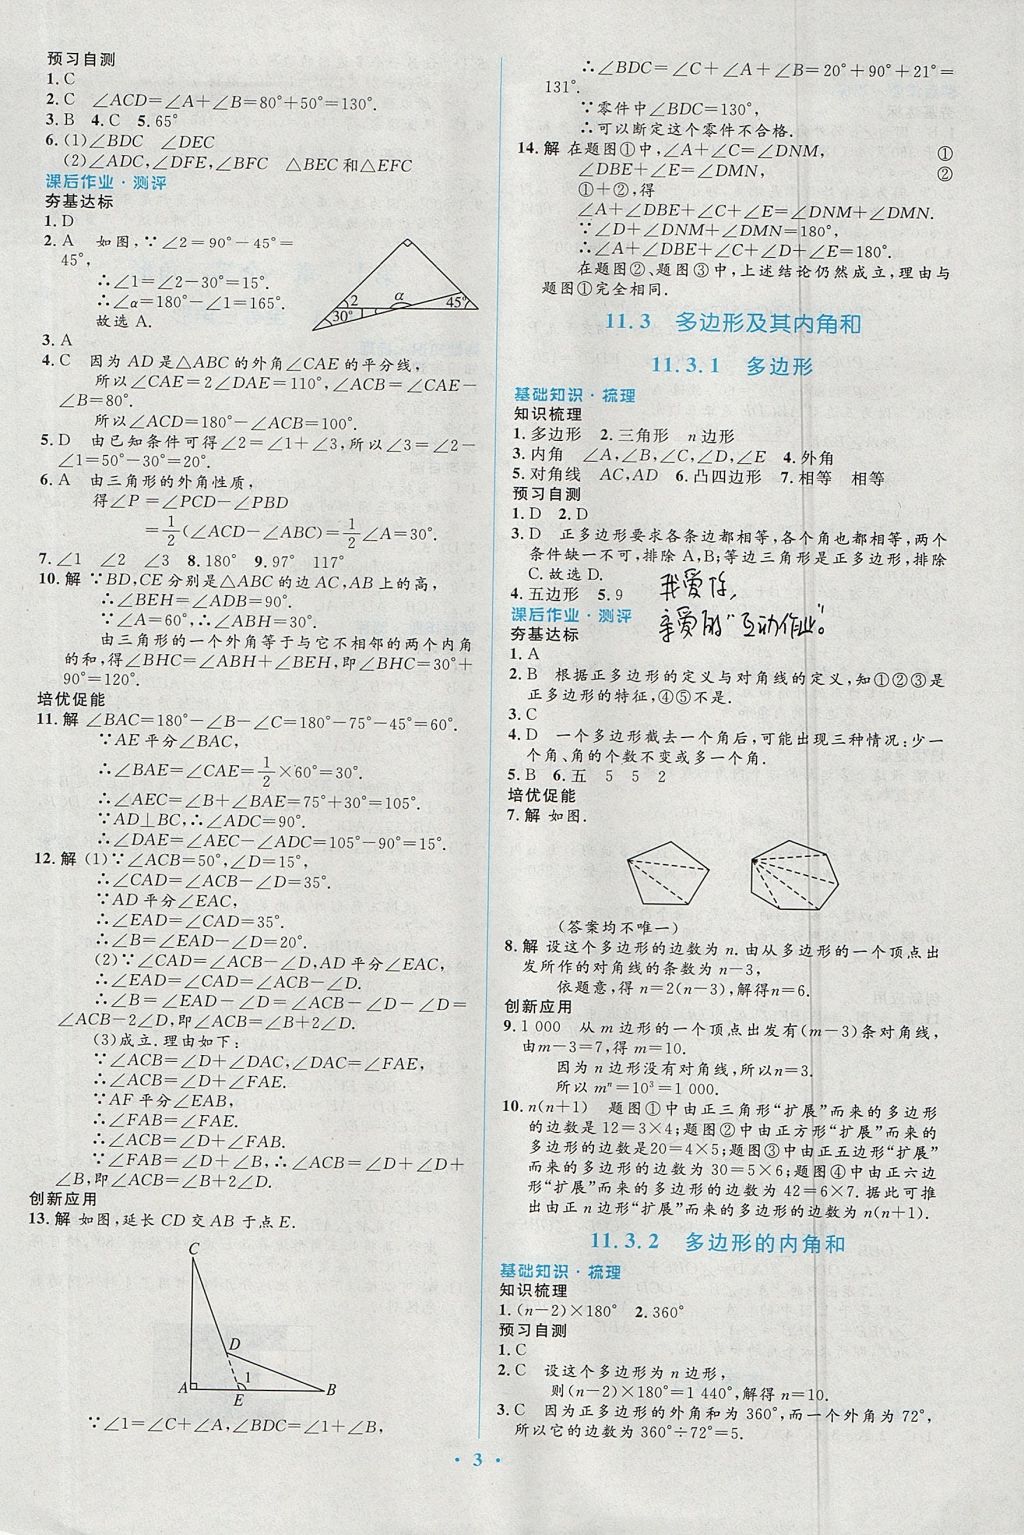 预习自测
1.C
2.C　∠ACD=∠A+∠B=80°+50°=130°.
3.B　4.C　5.65°
6.(1)∠BDC　∠DEC
(2)∠ADC,∠DFE,∠BFC　△BEC和△EFC
课后作业·测评
夯基达标
1.D
2.A　如图,∵∠2=90°-45°=
45°,
∴∠1=∠2-30°=15°.
∴∠α=180°-∠1=165°.
故选A.
2　α　45°
30°　1
3.A
4.C　因为AD是△ABC的外角∠CAE的平分线,
所以∠CAE=2∠DAE=110°,∠ACB=∠CAE-
∠B=80°.
所以∠ACD=180°-∠ACB=100°.
5.D　由已知条件可得∠2=∠1+∠3,所以∠3=∠2-
∠1=50°-30°=20°.
6.A　由三角形的外角性质,
得∠P=∠PCD-∠PBD
=1/2(∠ACD-∠ABC)=1/2∠A=30°.
7.∠1　∠2　∠3　8.180°　9.97°　117°
10.解 ∵BD,CE分别是△ABC的边AC,AB上的高,
∴∠BEH=∠ADB=90°.
∵∠A=60°,∴∠ABH=30°.
由三角形的一个外角等于与它不相邻的两个内角
的和,得∠BHC=∠ABH+∠BEH,即∠BHC=30°+
90°=120°.
培优促能
11.解 ∠BAC=180°-∠B-∠C=180°-75°-45°=60°.
∵AE平分∠BAC,
∴∠BAE=∠CAE=1/2×60°=30°.
∴∠AEC=∠B+∠BAE=75°+30°=105°.
∵AD⊥BC,∴∠ADC=90°.
∴∠DAE=∠AEC-∠ADC=105°-90°=15°.
12.解 (1)∵∠ACB=50°,∠D=15°,
∴∠CAD=∠ACB-∠D=35°.
∵AD平分∠EAC,
∴∠EAD=∠CAD=35°.
∴∠B=∠EAD-∠D=20°.
(2)∵∠CAD=∠ACB-∠D,AD平分∠EAC,
∴∠EAD=∠CAD=∠ACB-∠D.
∴∠B=∠EAD-∠D=∠ACB-∠D-∠D=
∠ACB-2∠D,即∠ACB=∠B+2∠D.
(3)成立.理由如下:
∵∠ACB=∠D+∠DAC,∠DAC=∠FAE,
∴∠ACB=∠D+∠FAE.
∵AF平分∠EAB,
∴∠FAB=∠FAE.
∴∠ACB=∠D+∠FAB.
∵∠FAB=∠B+∠D,∴∠ACB=∠D+∠D+
∠B,即∠ACB=∠B+2∠D.
创新应用
13.解 如图,延长CD交AB于点E.
C
D
A　E　1　B
∵∠1=∠C+∠A,∠BDC=∠1+∠B,
∴∠BDC=∠C+∠A+∠B=20°+90°+21°=
131°.
∵零件中∠BDC=130°,
∴可以断定这个零件不合格.
14.解 在题图①中,∠A+∠C=∠DNM,　①
∠DBE+∠E=∠DMN,　②
①+②,得
∠A+∠DBE+∠C+∠E=∠DNM+∠DMN.
∵∠D+∠DNM+∠DMN=180°,
∴∠A+∠DBE+∠C+∠D+∠E=180°.
在题图②、题图③中,上述结论仍然成立,理由与
题图①完全相同.
11.3　多边形及其内角和
11.3.1　多边形
基础知识·梳理
知识梳理
1.多边形　2.三角形　n边形
3.内角　∠A,∠B,∠C,∠D,∠E　4.外角
5.对角线　AC,AD　6.凸四边形　7.相等　相等
预习自测
1.D　2.D
3.D　正多边形要求各条边都相等,各个角也都相等,两个
条件缺一不可,排除A,B;等边三角形是正多边形,排除
C.故选D.
4.五边形　5.9
我爱你,
亲爱的“互动作业”。
课后作业·测评
夯基达标
1.A
2.B　根据正多边形的定义与对角线的定义,知①②③是
正多边形的特征,④⑤不是.
3.C
4.D　一个多边形截去一个角后,可能出现三种情况:少一
个角、角的个数不变或多一个角.
5.B　6.五　5　5　2
培优促能
7.解 如图.
(答案均不唯一)
8.解 设这个多边形的边数为n.由从多边形的一个顶点出
发所作的对角线的条数为n-3,
依题意,得n=2(n-3),解得n=6.
创新应用
9.1 000　从m边形的一个顶点出发有(m-3)条对角线,
由m-3=7,得m=10.
因为n边形没有对角线,所以n=3.
所以mⁿ=10³=1 000.
10.n(n+1)　题图①中由正三角形“扩展”而来的多边形
的边数是12=3×4;题图②中由正方形“扩展”而来的
多边形的边数是20=4×5;题图③中由正五边形“扩展”
而来的多边形的边数为30=5×6;题图④中由正六边
形“扩展”而来的多边形的边数为42=6×7.据此可推
出由正n边形“扩展”而来的多边形的边数为n(n+1).
11.3.2　多边形的内角和
基础知识·梳理
知识梳理
1.(n-2)×180°　2.360°
预习自测
1.C
2.C　设这个多边形为n边形,
则(n-2)×180°=1 440°,解得n=10.
3.C　因为正多边形的外角和为360°,而一个外角为72°,
所以它的边数为360°÷72°=5.
3